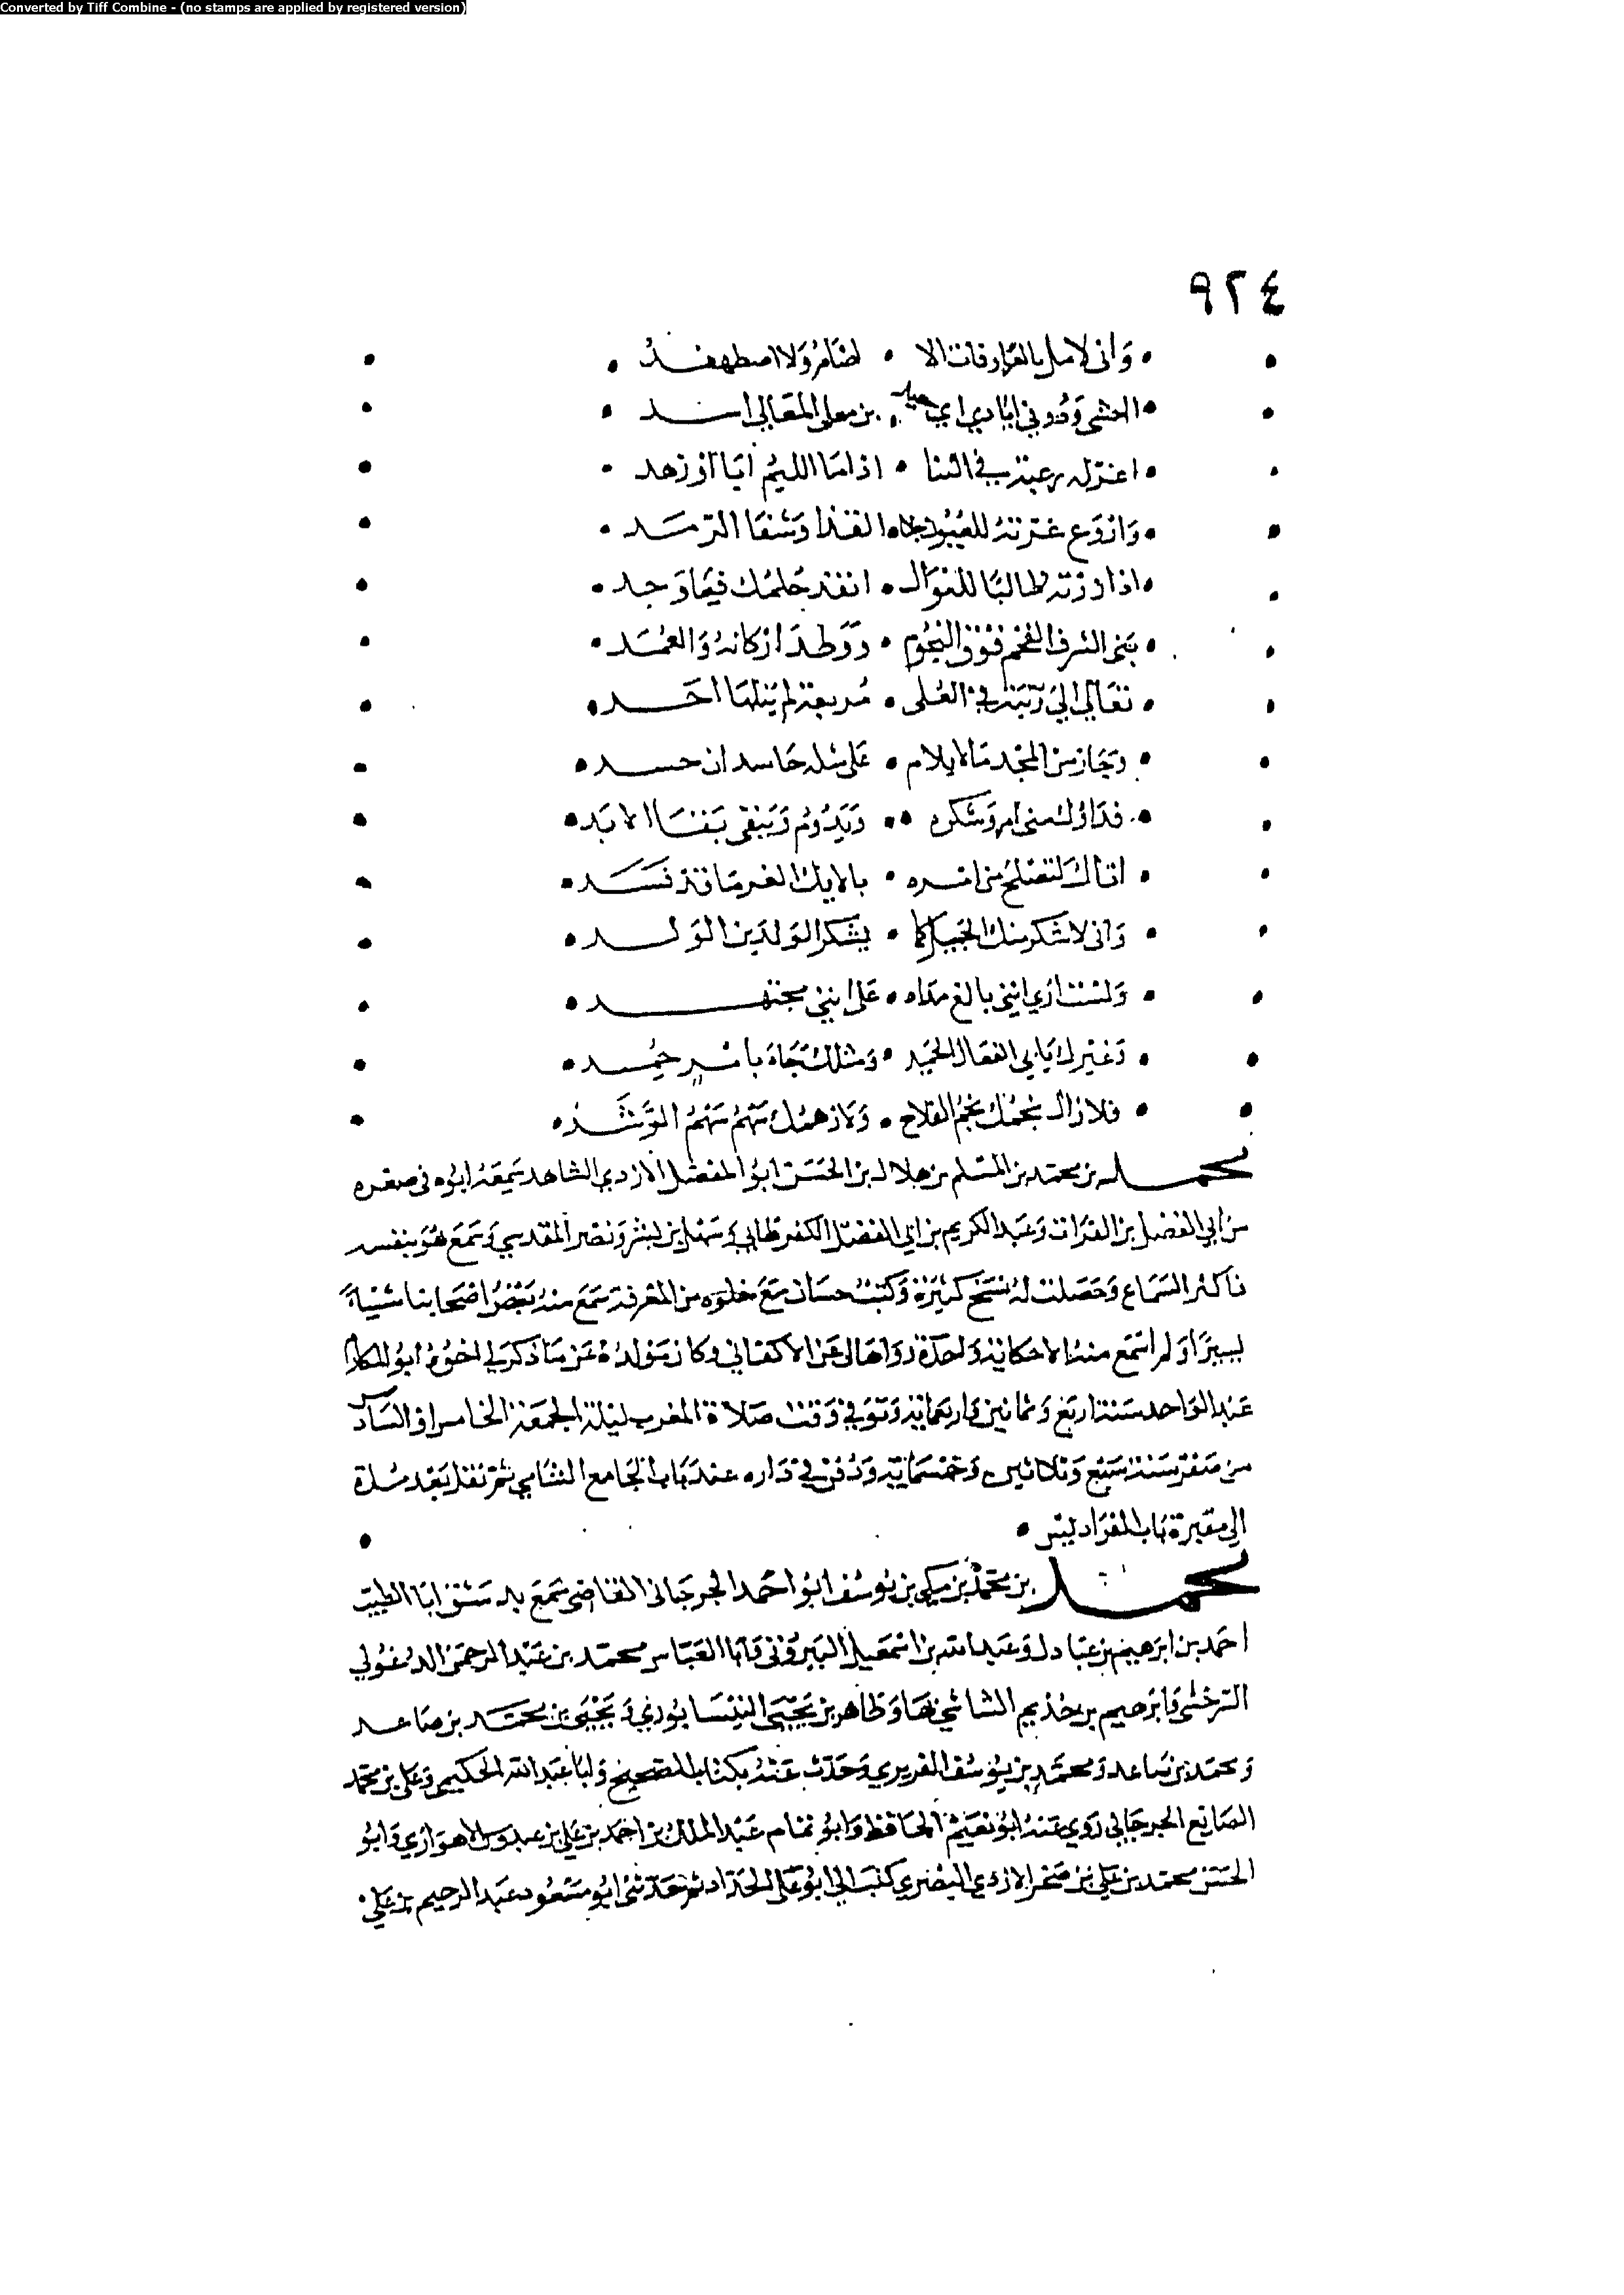 Converted by Tiff Combine - (no stamps are applied by registered version)
٩٢٤
وانى لامل بالعارفات الا • اضام ولا اضطهد
اخشى ودونى ايادي ابي • بن معلى المعالى اسد
اغر له رغبة في الثنا • اذا ما اللئيم اباا او زهد
واروع غرته للعيون جلاء القذا وشفا الرمد
اذا زرته طالبا للنوال • انفذ حكمك فيما وجد
بنى الشرف الفخم فوق النجوم • ووطد اركانه والعمد
تعالى الى رتبة في العلى • لم ينلها احد
وحاز من المجد ما لا يلام • على مثله حاسد ان حسد
فداؤك منى امرؤ شكره • ويدوم ويبقى بقاا الابد
اتاك لتصلح من امره • بالايك الغر ما قد فسد
وانى لاشكر منك الجميل كما • يشكر الوالدين الولد
ولست ارى اننى بالغ مداه • على اننى مجتهد
وغيرك يابى الفعال الحميد • ومثلك جاء بامر حمد
فلا زال نجمك نجم الفلاح • ولا زهمك سهم سهم الرشد
محمد بن محمد بن المسلم بن هلال بن الحسن ابو المفضل الازدي الشاهد سمعه ابوه في صغره
من ابي الفضل بن الفرات وعبد الكريم بن ابي الفضل الكفرطابي وسهل بن بشر ونصر المقدسي وسمع هو بنفسه
فاكثر السماع وحصلت له نسخ كثيرة وكتب حسان مع خلوه من المعرفة سمع منه بعض اصحابنا شيئا
يسيرا ولم اسمع منه الا حكاية واحدة رواها لى عن الاكفاني وكان مولده عن ما ذكر لي اخوه ابو المكارم
عبد الواحد سنة اربع وثمانين واربعماية وتوفي وقت صلاة المغرب ليلة الجمعة الخامس او السادس
من صفر سنة سبع وثلاثين وخمسماية ودفن في داره عند باب الجامع الشامي ثم نقل بعد مدة
الى مقبرة باب الفراديس •
محمد بن محمد بن مكي بن يوسف ابو احمد الجرجاني القاضي سمع بدمشق ابا الطيب
احمد بن ابرهيم بن عبادل وعبد الله بن اسمعيل البيروني وابا العباس محمد بن عبد الرحمن الدغولي
السرخسي وابرهيم بن خذيم الشاشي بها وطاهر بن يحيى النيسابوري ويحيى بن محمد بن صاعد
ومحمد بن ساعد ومحمد بن يوسف الفربري وحدث عنه بكتاب الصحيح وابا عبد الله الحكيمي وعلي بن محمد
الصايغ الجرجاني روى عنه ابو نعيم الحافظ وابو تمام عبد الملك بن احمد بن علي بن عبدوس الاهوازي وابو
الحسن محمد بن علي بن صخر الازدي البصري كتب الي ابو علي الحداد ثم حدثني ابو مسعود عبد الرحيم بن علي